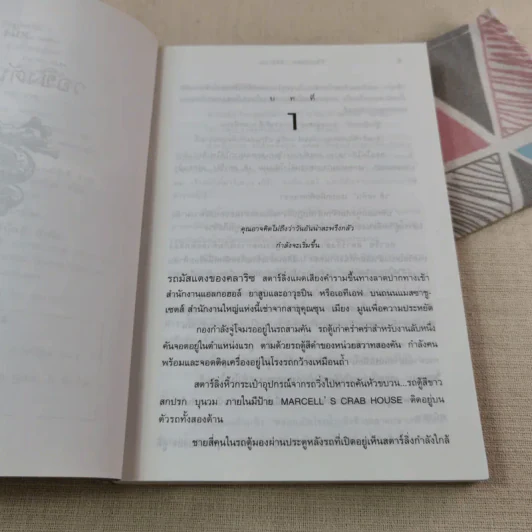 บทที่
1
คุณอาจคิดไม่ถึงว่าวันอันน่าสะพรึงกลัว
กำลังจะเริ่มขึ้น
รถมัสแตงของคลาริซ สตาร์ลิ่งแผดเสียงคำรามขึ้นทางลาดปากทางเข้า
สำนักงานแอลกอฮอล์ ยาสูบและอาวุธปืน หรือเอทีเอฟ บนถนนแมสซาชู-
เซตส์ สำนักงานใหญ่แห่งนี้เช่าจากสาธุคุณซุน เมียง มูนเพื่อความประหยัด
กองกำลังจู่โจมรออยู่ในรถสามคัน รถตู้เก่าคร่ำคร่าสำหรับงานลับหนึ่ง
คันจอดอยู่ในตำแหน่งแรก ตามด้วยรถตู้สีดำของหน่วยสวาทสองคัน กำลังคน
พร้อมและจอดติดเครื่องอยู่ในโรงรถกว้างเหมือนถ้ำ
สตาร์ลิ่งหิ้วกระเป๋าอุปกรณ์จากรถวิ่งไปหารถคันหัวขบวน...รถตู้สีขาว
สกปรก บุบวม ภายในมีป้าย MARCELL'S CRAB HOUSE ติดอยู่บน
ตัวรถทั้งสองด้าน
ชายสี่คนในรถตู้มองผ่านประตูหลังรถที่เปิดอยู่เห็นสตาร์ลิ่งกำลังใกล้